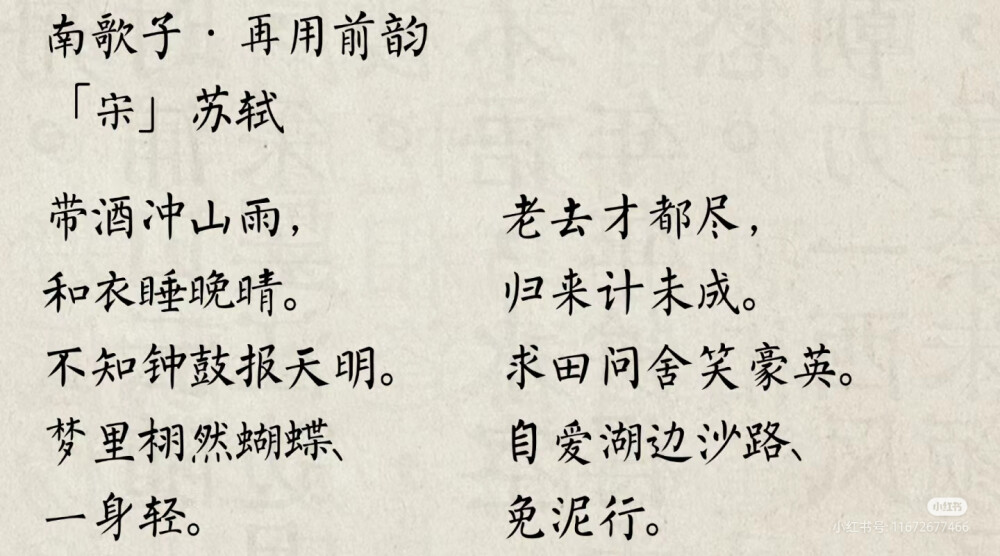 南歌子·再用前韵
「宋」苏轼
带酒冲山雨，
和衣睡晚晴。
不知钟鼓报天明。
梦里栩然蝴蝶、
一身轻。
老去才都尽，
归来计未成。
求田问舍笑豪英。
自爱湖边沙路、
免泥行。
小红书
小红书号: 11672677466